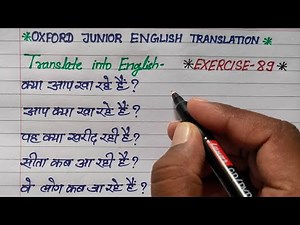 *OXFORD JUNIOR ENGLISH TRANSLATION*
Translate into English- *EXERCISE-89*
क्या आप खा रहे हैं?
आप क्या खा रहे हैं?
वह क्या खरीद रही है?
सीता कब आ रही है?
वे लोग कब आ रहे हैं?